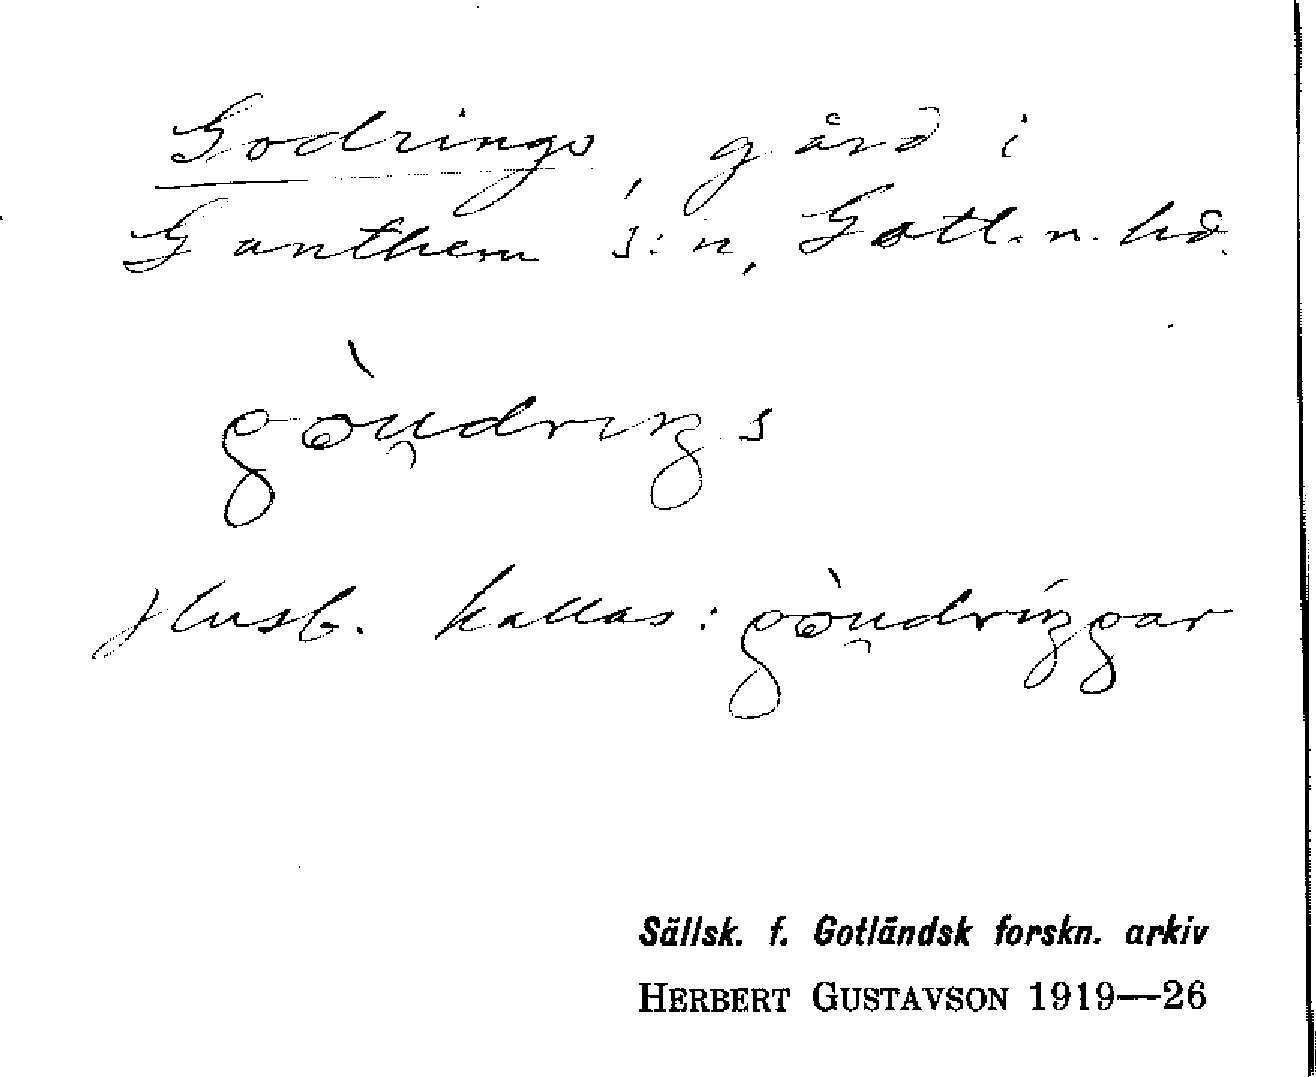 Godrings, gård i
Ganthem s:n, Gotl. n. hd.
gòu̯driŋs
Husb. kallas: gòu̯dríŋgar
Sällsk. f. Gotländsk forskn. arkiv
HERBERT GUSTAVSON 1919—26